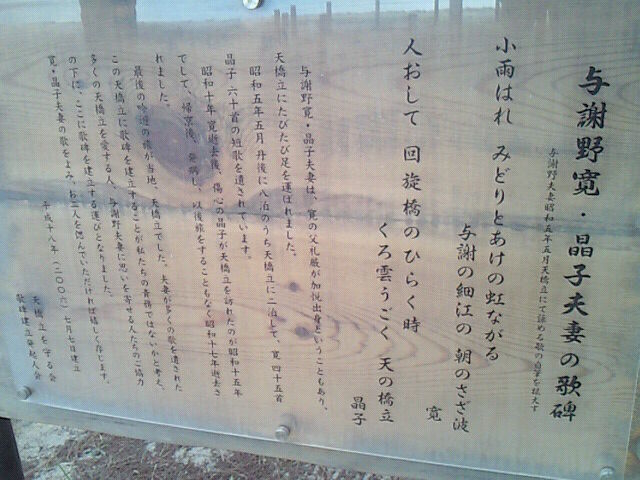 与謝野寛・晶子夫妻の歌碑
与謝野夫妻昭和五年五月天橋立にて詠める歌の自筆を拡大す
小雨はれ みどりとあけの虹ながる
与謝の細江の 朝のさざ波
寛
人おして 回旋橋のひらく時
くろ雲うごく 天の橋立
晶子
与謝野寛・晶子夫妻は、寛の父礼厳が加悦出身ということもあり、
天橋立にたびたび足を運ばれました。
昭和五年五月 丹後に八泊のうち天橋立に二泊して、寛 四十五首
晶子 六十首の短歌を遺されています。
昭和十年 寛逝去後、傷心の晶子が天橋立を訪れたのが昭和十五年
でして、帰京後、発病し、以後旅をすることもなく昭和十七年逝去さ
れました。
最後の吟遊の旅が当地、天橋立でした。夫妻が多くの歌を遺された
この天橋立に歌碑を建立することが私たちの責務ではないかと考え、
多くの天橋立を愛する人、与謝野夫妻に思いを寄せる人たちのご協力
の下に、ここに歌碑を建立する運びとなりました。
寛・晶子夫妻の歌をよみ、お二人を偲んでいただければ嬉しく存じます。
平成十八年(二〇〇六) 七月七日建立
天橋立を守る会
歌碑建立発起人会